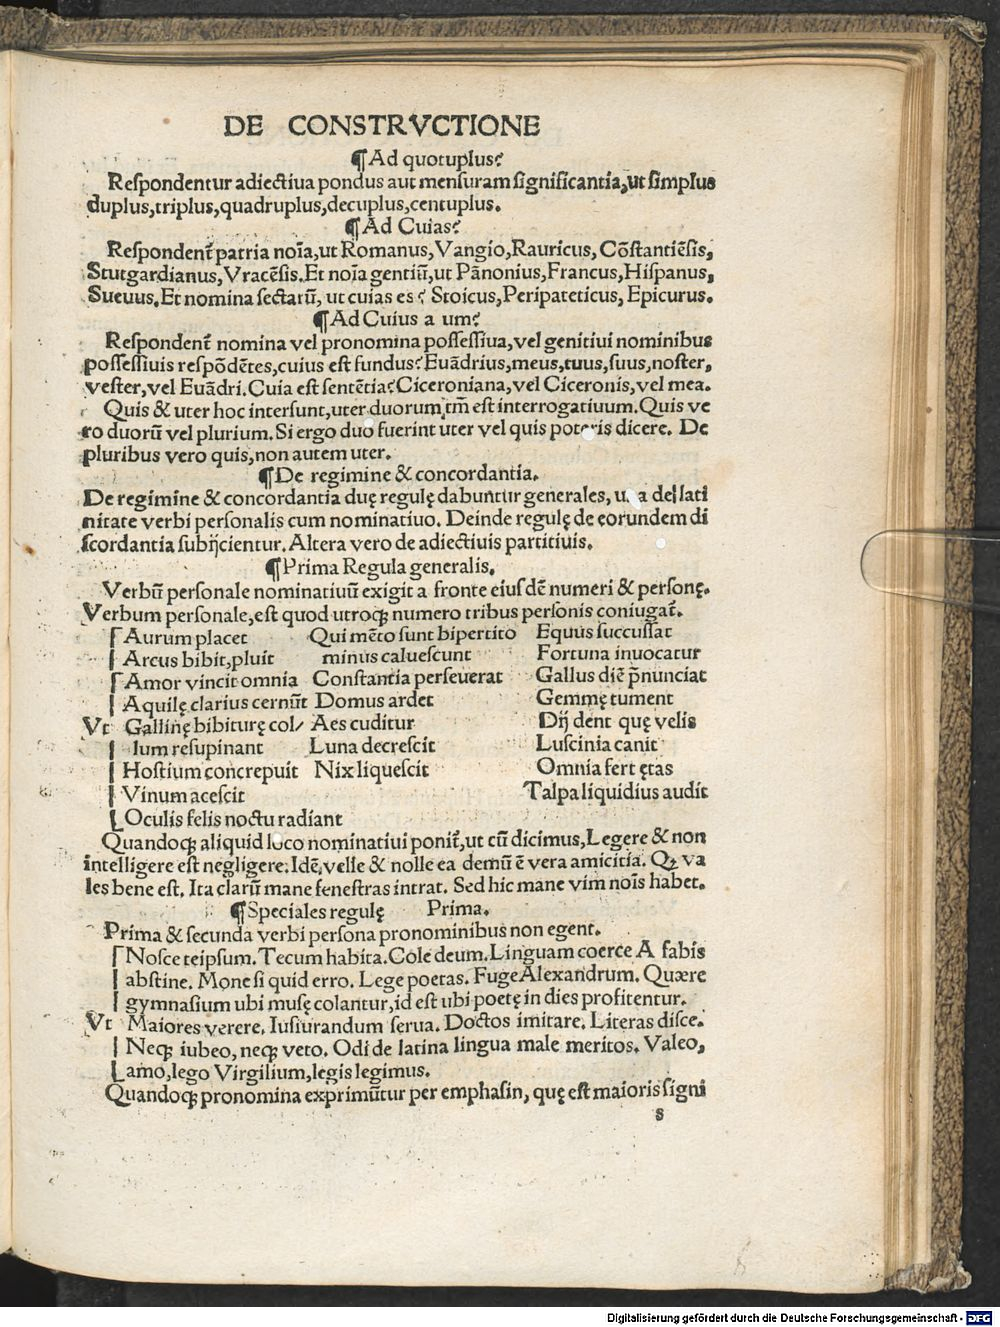 DE CONSTRVCTIONE
¶Ad quotuplus?
Reſpondentur adiectiua pondus aut menſuram ſignificantia, ut ſimplus
duplus,triplus,quadruplus,decuplus,centuplus.
¶Ad Cuias?
Reſpondent᷑ patria noĩa,ut Romanus,Vangio,Rauricus,Cõſtantiẽſis,
Stutgardianus,Vracẽſis.Et noĩa gentiũ,ut Pãnonius,Francus,Hiſpanus,
Sueuus.Et nomina ſectarũ, ut cuias es? Stoicus,Peripateticus, Epicurus.
¶Ad Cuius a um?
Reſpondent᷑ nomina vel pronomina poſſeſſiua,vel genitiui nominibus
poſſeſſiuis reſpõdẽtes,cuius eſt fundus? Euãdrius,meus,tuus,ſuus,noſter,
veſter,vel Euãdri.Cuia eſt ſentẽtia?Ciceroniana,vel Ciceronis,vel mea.
Quis & uter hoc interſunt,uter duorum tm̃ eſt interrogatiuum.Quis ve
ro duorũ vel plurium.Si ergo duo fuerint uter vel quis poteris dicere. De
pluribus vero quis,non autem uter.
¶De regimine & concordantia.
De regimine & concordantia duę regulę dabuntur generales, una de lati
nitate verbi perſonalis cum nominatiuo. Deinde regulę de eorundem di
ſcordantia ſubijcientur. Altera vero de adiectiuis partitiuis.
¶Prima Regula generalis.
Verbũ perſonale nominatiuũ exigit a fronte eiuſdẽ numeri & perſonę.
Verbum perſonale,eſt quod utroq; numero tribus perſonis coniugat᷑.
Aurum placet Qui mẽto ſunt bipertito Equus ſuccuſſat
Arcus bibit,pluit minus calueſcunt Fortuna inuocatur
Amor vincit omnia Conſtantia perſeuerat Gallus diẽ p̃nunciat
Aquilę clarius cernũt Domus ardet Gemmę tument
Vt Gallinę bibiturę col/ Aes cuditur Dij dent quę velis
lum reſupinant Luna decreſcit Luſcinia canit
Hoſtium concrepuit Nix liqueſcit Omnia fert ętas
Vinum aceſcit Talpa liquidius audit
Oculis felis noctu radiant
Quandoq; aliquid loco nominatiui ponit᷑,ut cũ dicimus,Legere & non
intelligere eſt negligere.Idẽ velle & nolle ea demũ ẽ vera amicitia. Qꝫ va
les bene eſt. Ita clarũ mane feneſtras intrat. Sed hic mane vim noĩs habet.
¶Speciales regulę Prima.
Prima & ſecunda verbi perſona pronominibus non egent.
Noſce teipſum.Tecum habita.Cole deum.Linguam coerce A fabis
abſtine. Mone ſi quid erro. Lege poetas. Fuge Alexandrum. Quære
gymnaſium ubi muſę colantur,id eſt ubi poetę in dies profitentur.
Vt Maiores verere. Iuſiurandum ſerua. Doctos imitare. Literas diſce.
Neq; iubeo, neq; veto. Odi de latina lingua male meritos. Valeo,
amo,lego Virgilium,legis legimus.
Quandoq; pronomina exprimũtur per emphaſin, quę eſt maioris ſigni
s
Digitalisierung gefördert durch die Deutsche Forschungsgemeinschaft - DFG